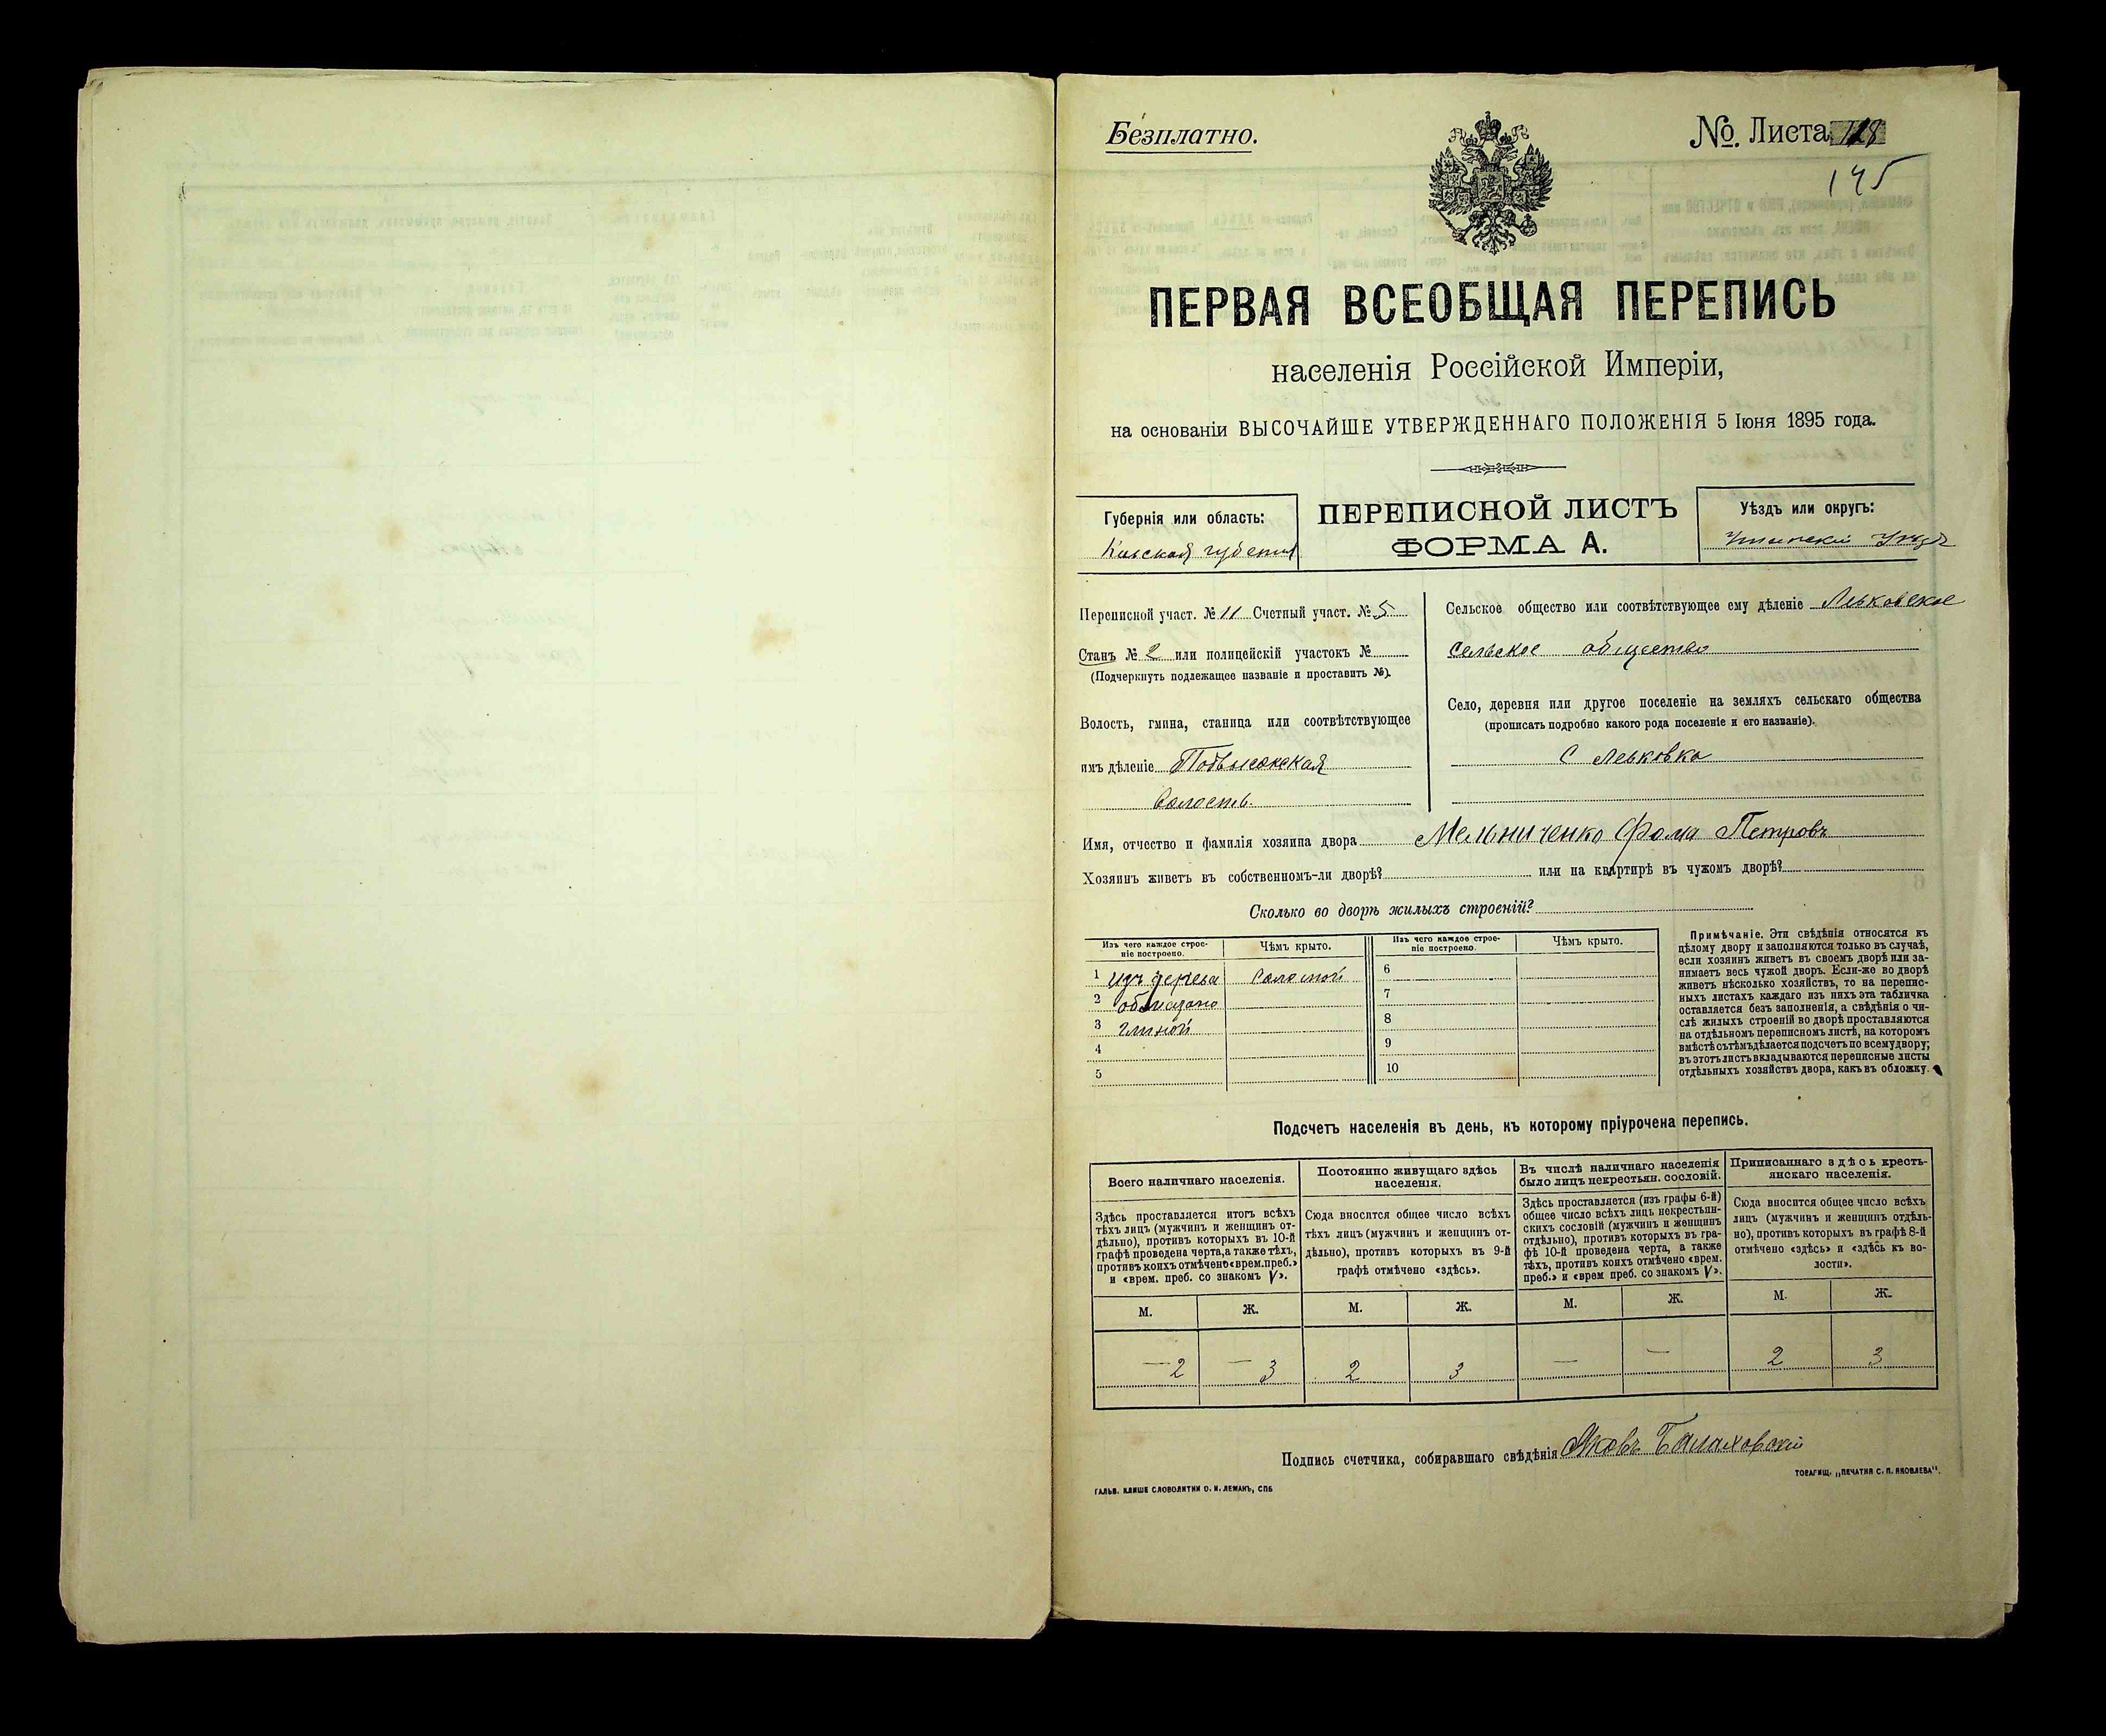 Безплатно.
№. Листа 118
145
ПЕРВАЯ ВСЕОБЩАЯ ПЕРЕПИСЬ
населенія Россійской Имперіи,
на основаніи ВЫСОЧАЙШЕ УТВЕРЖДЕННАГО ПОЛОЖЕНІЯ 5 Іюня 1895 года.
Губернія или область:
Кіевская губернія
ПЕРЕПИСНОЙ ЛИСТЪ
ФОРМА А.
Уѣздъ или округъ:
Уманскій Уѣздъ
Переписной участ. № 11 Счетный участ. № 5
Станъ № 2 или полицейскій участокъ №
(Подчеркнуть подлежащее названіе и проставить №).
Волость, гмина, станица или соотвѣтствующее
имъ дѣленіе Подвысоцкая
волость.
Сельское общество или соотвѣтствующее ему дѣленіе Левковское
сельское общество
Село, деревня или другое поселеніе на земляхъ сельскаго общества
(прописать подробно какого рода поселеніе и его названіе).
С Левковка
Имя, отчество и фамилія хозяина двора Мельниченко Фома Петровъ
Хозяинъ живетъ въ собственномъ-ли дворѣ? или на квартирѣ въ чужомъ дворѣ?
Сколько во дворѣ жилыхъ строеній?
Изъ чего каждое строе-
ніе построено.
Чѣмъ крыто.
Изъ чего каждое строе-
ніе построено.
Чѣмъ крыто.
1 изъ дерева соломой
2 обмазано
3 глиной
4
5
6
7
8
9
10
Примѣчаніе. Эти свѣдѣнія относятся къ
цѣлому двору и заполняются только въ случаѣ,
если хозяинъ живетъ въ своемъ дворѣ или за-
нимаетъ весь чужой дворъ. Если-же во дворѣ
живетъ нѣсколько хозяйствъ, то на перепис-
ныхъ листахъ каждаго изъ нихъ эта табличка
оставляется безъ заполненія, а свѣдѣнія о чи-
слѣ жилыхъ строеній во дворѣ проставляются
на отдѣльномъ переписномъ листѣ, на которомъ
вмѣстѣ съ тѣмъ дѣлается подсчетъ по всему двору;
въ этотъ листъ вкладываются переписные листы
отдѣльныхъ хозяйствъ двора, какъ въ обложку.
Подсчетъ населенія въ день, къ которому пріурочена перепись.
Всего наличнаго населенія.
Здѣсь проставляется итогъ всѣхъ
тѣхъ лицъ (мужчинъ и женщинъ от-
дѣльно), противъ которыхъ въ 10-й
графѣ проведена черта, а также тѣхъ,
противъ коихъ отмѣчено «врем. преб.»
и «врем. преб. со знакомъ V».
Постоянно живущаго здѣсь
населенія.
Сюда вносится общее число всѣхъ
тѣхъ лицъ (мужчинъ и женщинъ от-
дѣльно), противъ которыхъ въ 9-й
графѣ отмѣчено «здѣсь».
Въ числѣ наличнаго населенія
было лицъ некрестьян. сословій.
Здѣсь проставляется (изъ графы 6-й)
общее число всѣхъ лицъ некрестьян-
скихъ сословій (мужчинъ и женщинъ
отдѣльно), противъ которыхъ въ гра-
фѣ 10-й проведена черта, а также
тѣхъ, противъ коихъ отмѣчено «врем.
преб.» и «врем преб. со знакомъ V».
Приписаннаго здѣсь кресть-
янскаго населенія.
Сюда вносится общее число всѣхъ
лицъ (мужчинъ и женщинъ отдѣль-
но), противъ которыхъ въ графѣ 8-й
отмѣчено «здѣсь» и «здѣсь къ во-
лости».
М. Ж. М. Ж. М. Ж. М. Ж.
— 2 — 3 2 3 — — 2 3
Подпись счетчика, собиравшаго свѣдѣнія Яковъ Балаховскій
ГАЛЬВ. КЛИШЕ СЛОВОЛИТНИ О. И. ЛЕМАНЪ, СПБ
ТОВАРИЩ. „ПЕЧАТНЯ С. П. ЯКОВЛЕВА".